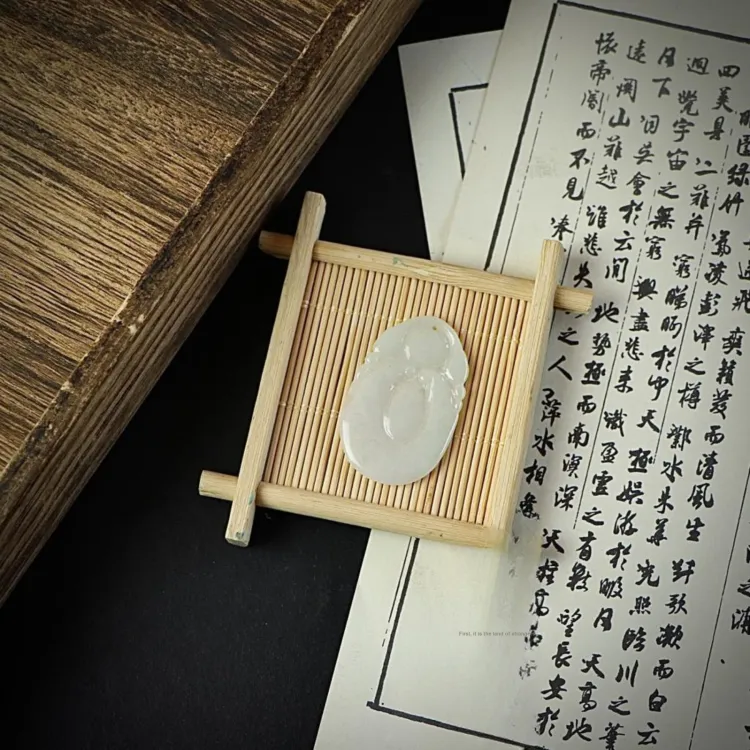 飛爽籟發而清風生纖歌凝而白云
園綠竹氣凌彭澤之樽鄴水朱華光照臨川之筆
四美具二難并窮睇眄於中天極娛游於暇日天高地
迥覺宇宙之無窮興盡悲來識盈虛之有數望長安於
月下目吳會於云間地勢極而南溟深天柱高而
遠關山難越誰悲失之人萍水相逢
懷帝閽而不見奉